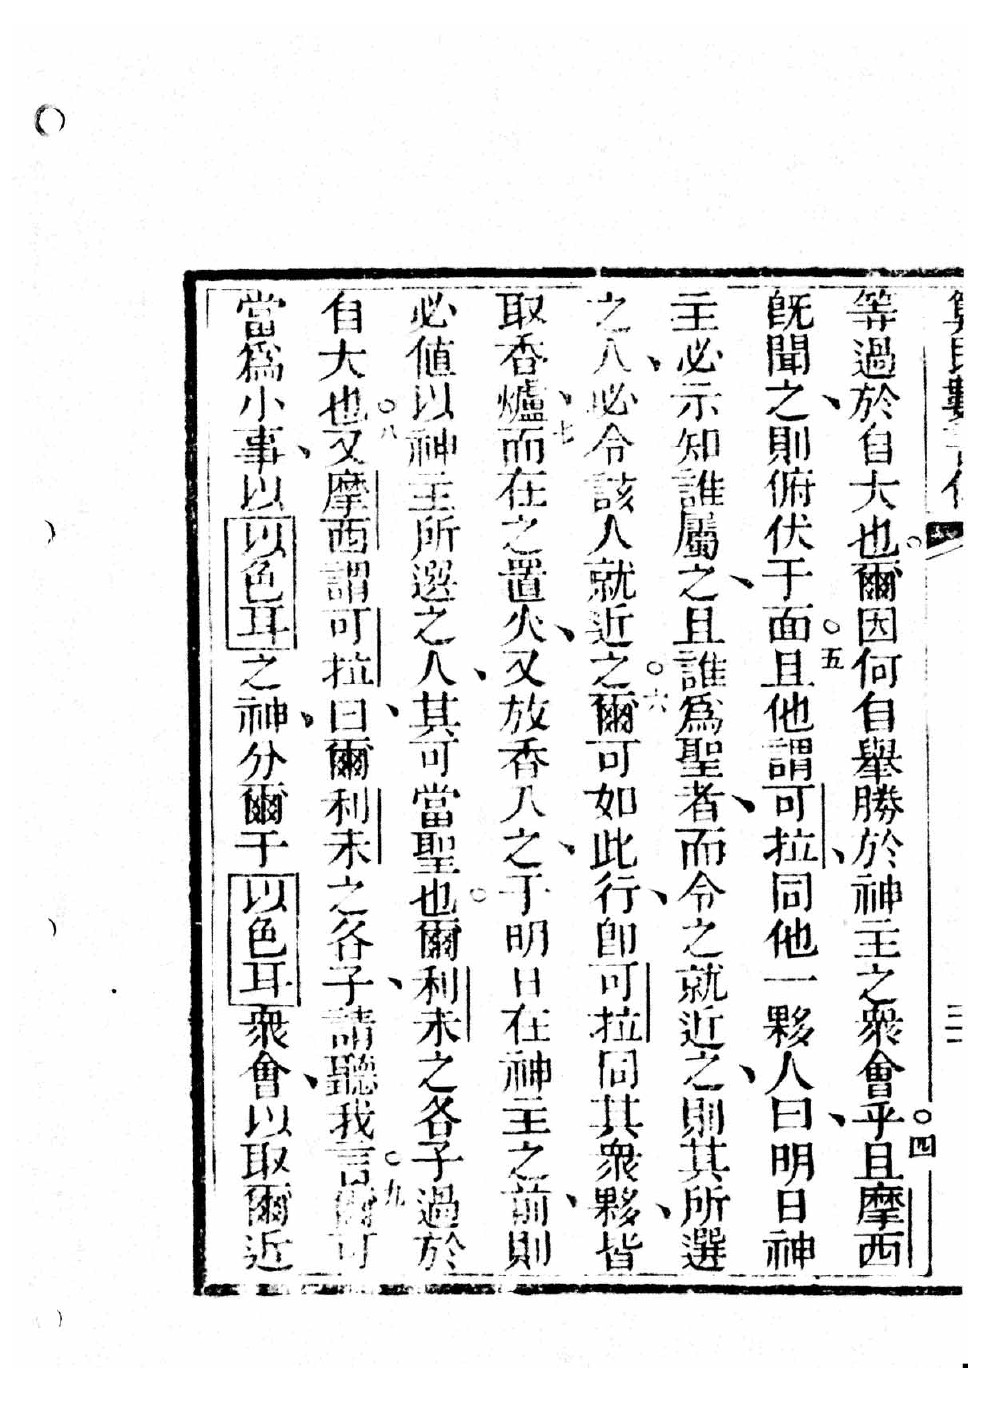 等過於自大也。爾因何自舉勝於神主之衆會乎。四且摩西
既聞之、則俯伏于面。五且他謂可拉、同他一夥人曰、明日神
主必示知誰屬之、且誰爲聖者、而令之就近之、則其所選
之人、必令該人就近之。六爾可如此行、卽可拉同其衆夥、皆
取香爐、七而在之置火、又放香入之、于明日在神主之前、則
必值以神主所選之人、其可當聖也。爾利未之各子過於
自大也。八又摩西謂可拉曰、爾利未之各子、請聽我言。九爾可
當爲小事、以以色耳之神、分爾于以色耳衆會、以取爾近